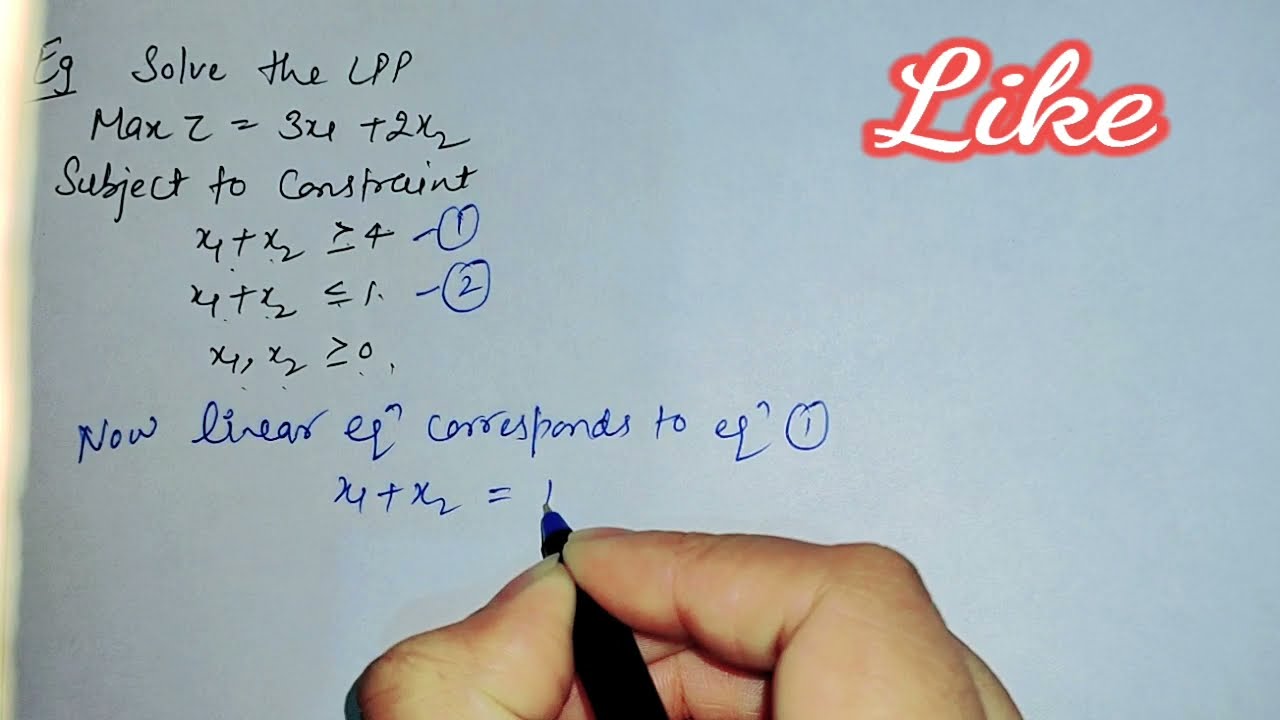 Eg Solve the LPP
Max Z = 3x₁ + 2x₂
Subject to Constraint
x₁ + x₂ ≥ 4 - ①
x₁ + x₂ ≤ 1. - ②
x₁, x₂ ≥ 0.
Now linear eqⁿ corresponds to eqⁿ ①
x₁ + x₂ =
Like